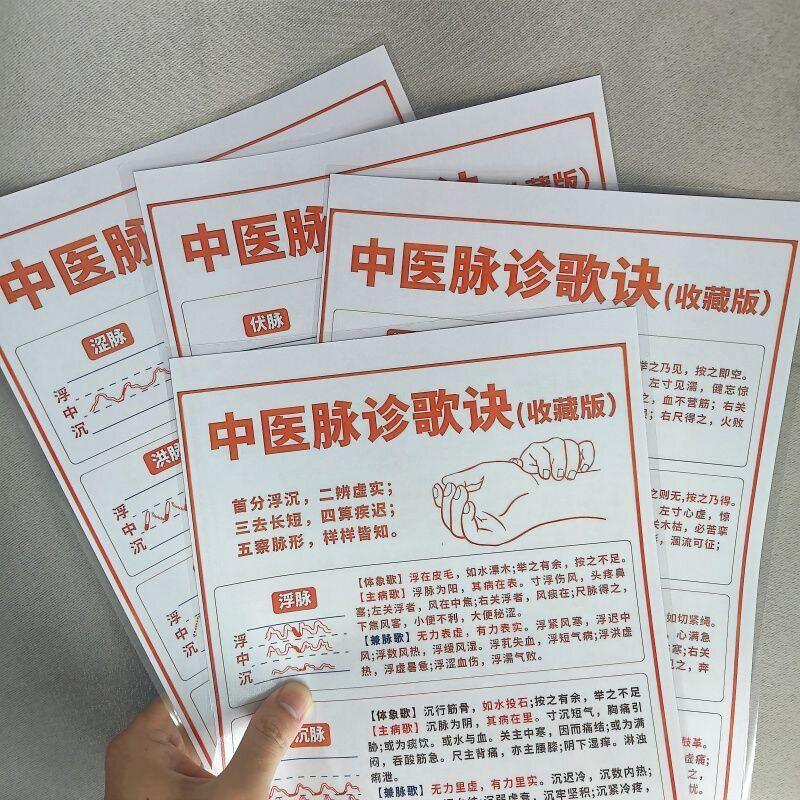 中医脉
涩脉
浮
中
沉
洪脉
浮
中
沉
中医脉
收藏版)
伏脉
中医脉诊歌诀(收藏版)
举之乃见，按之即空。
左寸见濡，健忘惊
，血不营筋；右关
；右尺得之，火败
之则无,按之乃得。
左寸心虚，惊
关木枯，必菩挛
，涸流可征；
如切紧绳。
心满急
伤寒；右关
见之，奔
鼓革。
虚痛；
之，
忧。
中医脉诊歌诀(收藏版)
首分浮沉，二辨虚实；
三去长短，四算疾迟；
五察脉形，样样皆知。
浮脉
浮
中
沉
【体象歌】浮在皮毛，如水漂木;举之有余，按之不足。
【主病歌】浮脉为阳，其病在表。寸浮伤风，头疼鼻
塞;左关浮者，风在中焦;右关浮者，风痰在;尺脉得之，
下焦风客，小便不利，大便秘涩。
【兼脉歌】无力表虚，有力表实。浮紧风寒，浮迟中
风;浮数风热，浮缓风湿。浮芤失血，浮短气病;浮洪虚
热，浮虚暑惫；浮涩血伤，浮濡气败。
沉脉
【体象歌】沉行筋骨，如水投石;按之有余，举之不足
【主病歌】沉脉为阴，其病在里。寸沉短气，胸痛引
胁;或为痰饮。或水与血。关主中寒，因而痛结;或为满
闷，吞酸筋急。尺主背痛，亦主腰膝;阴下湿痒。淋浊
痢泄。
【兼脉歌】无力里虚，有力里实。沉迟冷，沉数内热;
沉弱虚衰，沉牢坚积；沉紧冷疼，